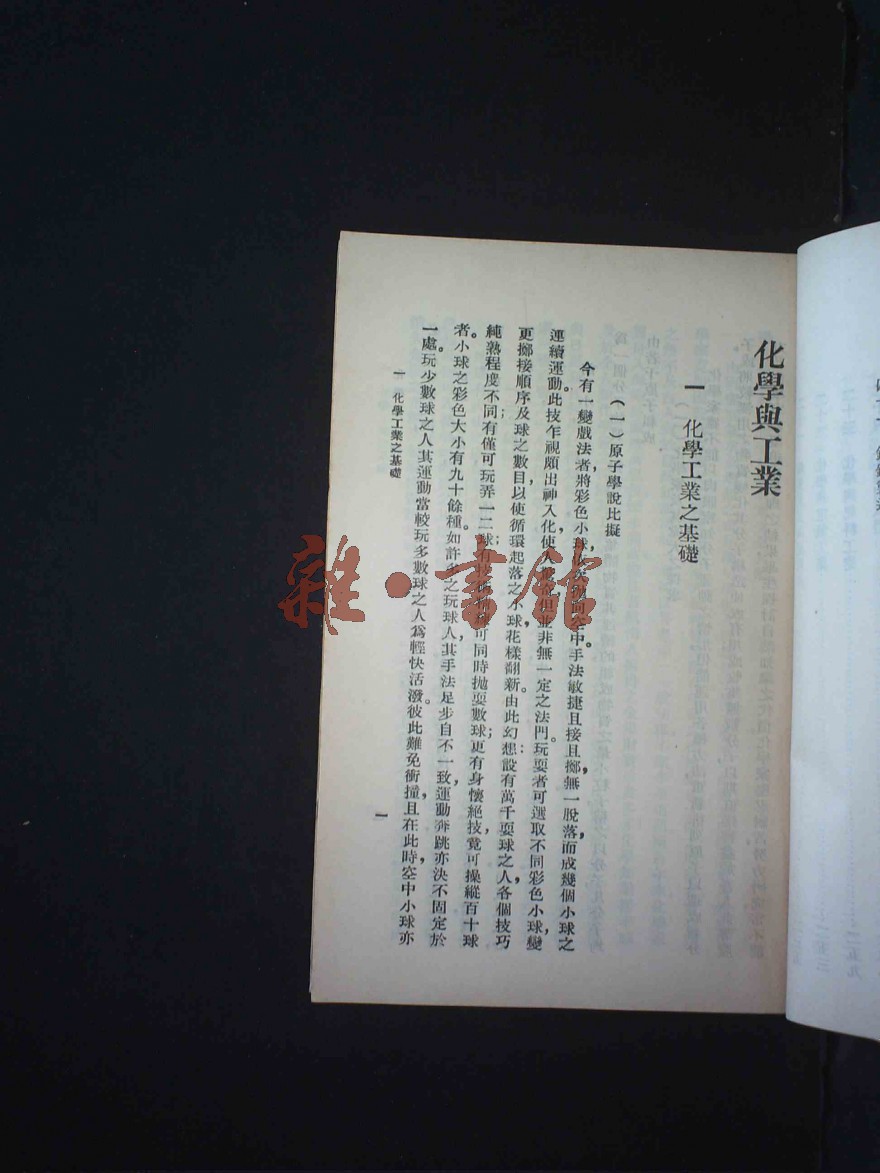 化學與工業
一 化學工業之基礎
(一)原子學說比擬
今有一變戲法者,將彩色小球,向空中手法敏捷且接且擲無一脫落而成幾個小球之
連續運動。此技乍視頗出神入化,使人但並非無一定之法門。玩耍者可選取不同彩色小球,變
更擲接順序及球之數目以使循環起落之小球,花樣翻新由此幻想設有萬千耍球之人,各個技巧
純熟程度不同有僅可玩弄一二球;有可同時拋耍數球;更有身懷絕技,竟可操縱百十球
者。小球之彩色大小有九十餘種如許多之玩球人其手法足步自不一致運動奔跳亦決不固定於
一處。玩少數球之人其運動當較玩多數球之人爲輕快活潑。彼此難免衝撞且在此時,空中小球亦
一 化學工業之基礎
一
雜·書館
二五九